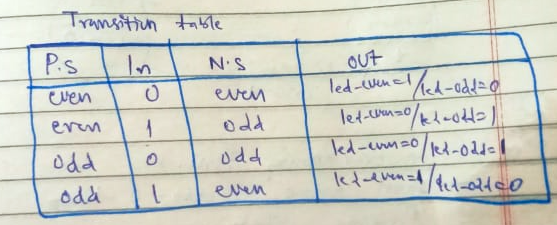 Transition table
P.S In N.S out
even 0 even led-even=1/led-odd=0
even 1 odd led-even=0/led-odd=1
odd 0 odd led-even=0/led-odd=1
odd 1 even led-even=1/led-odd=0